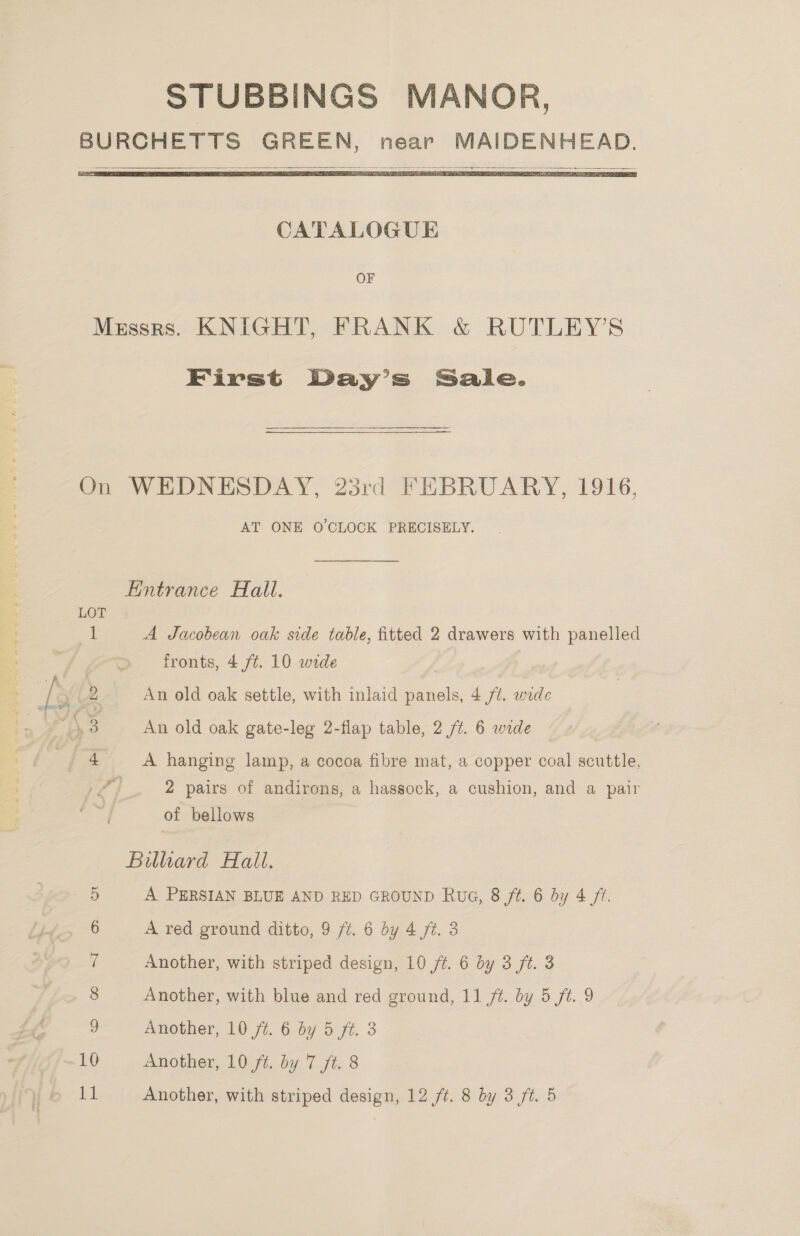 STUBBINGS MANOR,
BURCHETTS GREEN, near MAIDENHEAD.
CATALOGUE
OF
Messrs. KNIGHT, FRANK & RUTLEY'S
First Day's Sale.
On WEDNESDAY, 23rd FEBRUARY, 1916,
AT ONE O'CLOCK PRECISELY.
Entrance Hall.
LOT
1 A Jacobean oak side table, fitted 2 drawers with panelled
fronts, 4 ft. 10 wide
2 An old oak settle, with inlaid panels, 4 ft. wide
3 An old oak gate-leg 2-flap table, 2 ft. 6 wide
4 A hanging lamp, a cocoa fibre mat, a copper coal scuttle,
2 pairs of andirons, a hassock, a cushion, and a pair
of bellows
Billiard Hall.
5 A PERSIAN BLUE AND RED GROUND RUG, 8 ft. 6 by 4 ft.
6 A red ground ditto, 9 ft. 6 by 4 ft. 3
7 Another, with striped design, 10 ft. 6 by 3 ft. 3
8 Another, with blue and red ground, 11 ft. by 5 ft. 9
9 Another, 10 ft. 6 by 5 ft. 3
10 Another, 10 ft. by 7 ft. 8
11 Another, with striped design, 12 ft. 8 by 3 ft. 5